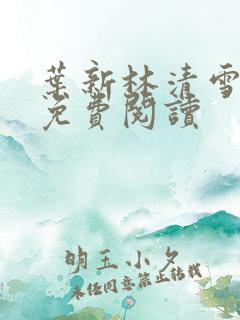 葉新林清雪
免費閱讀
明玉小夕
未经同意禁止转载